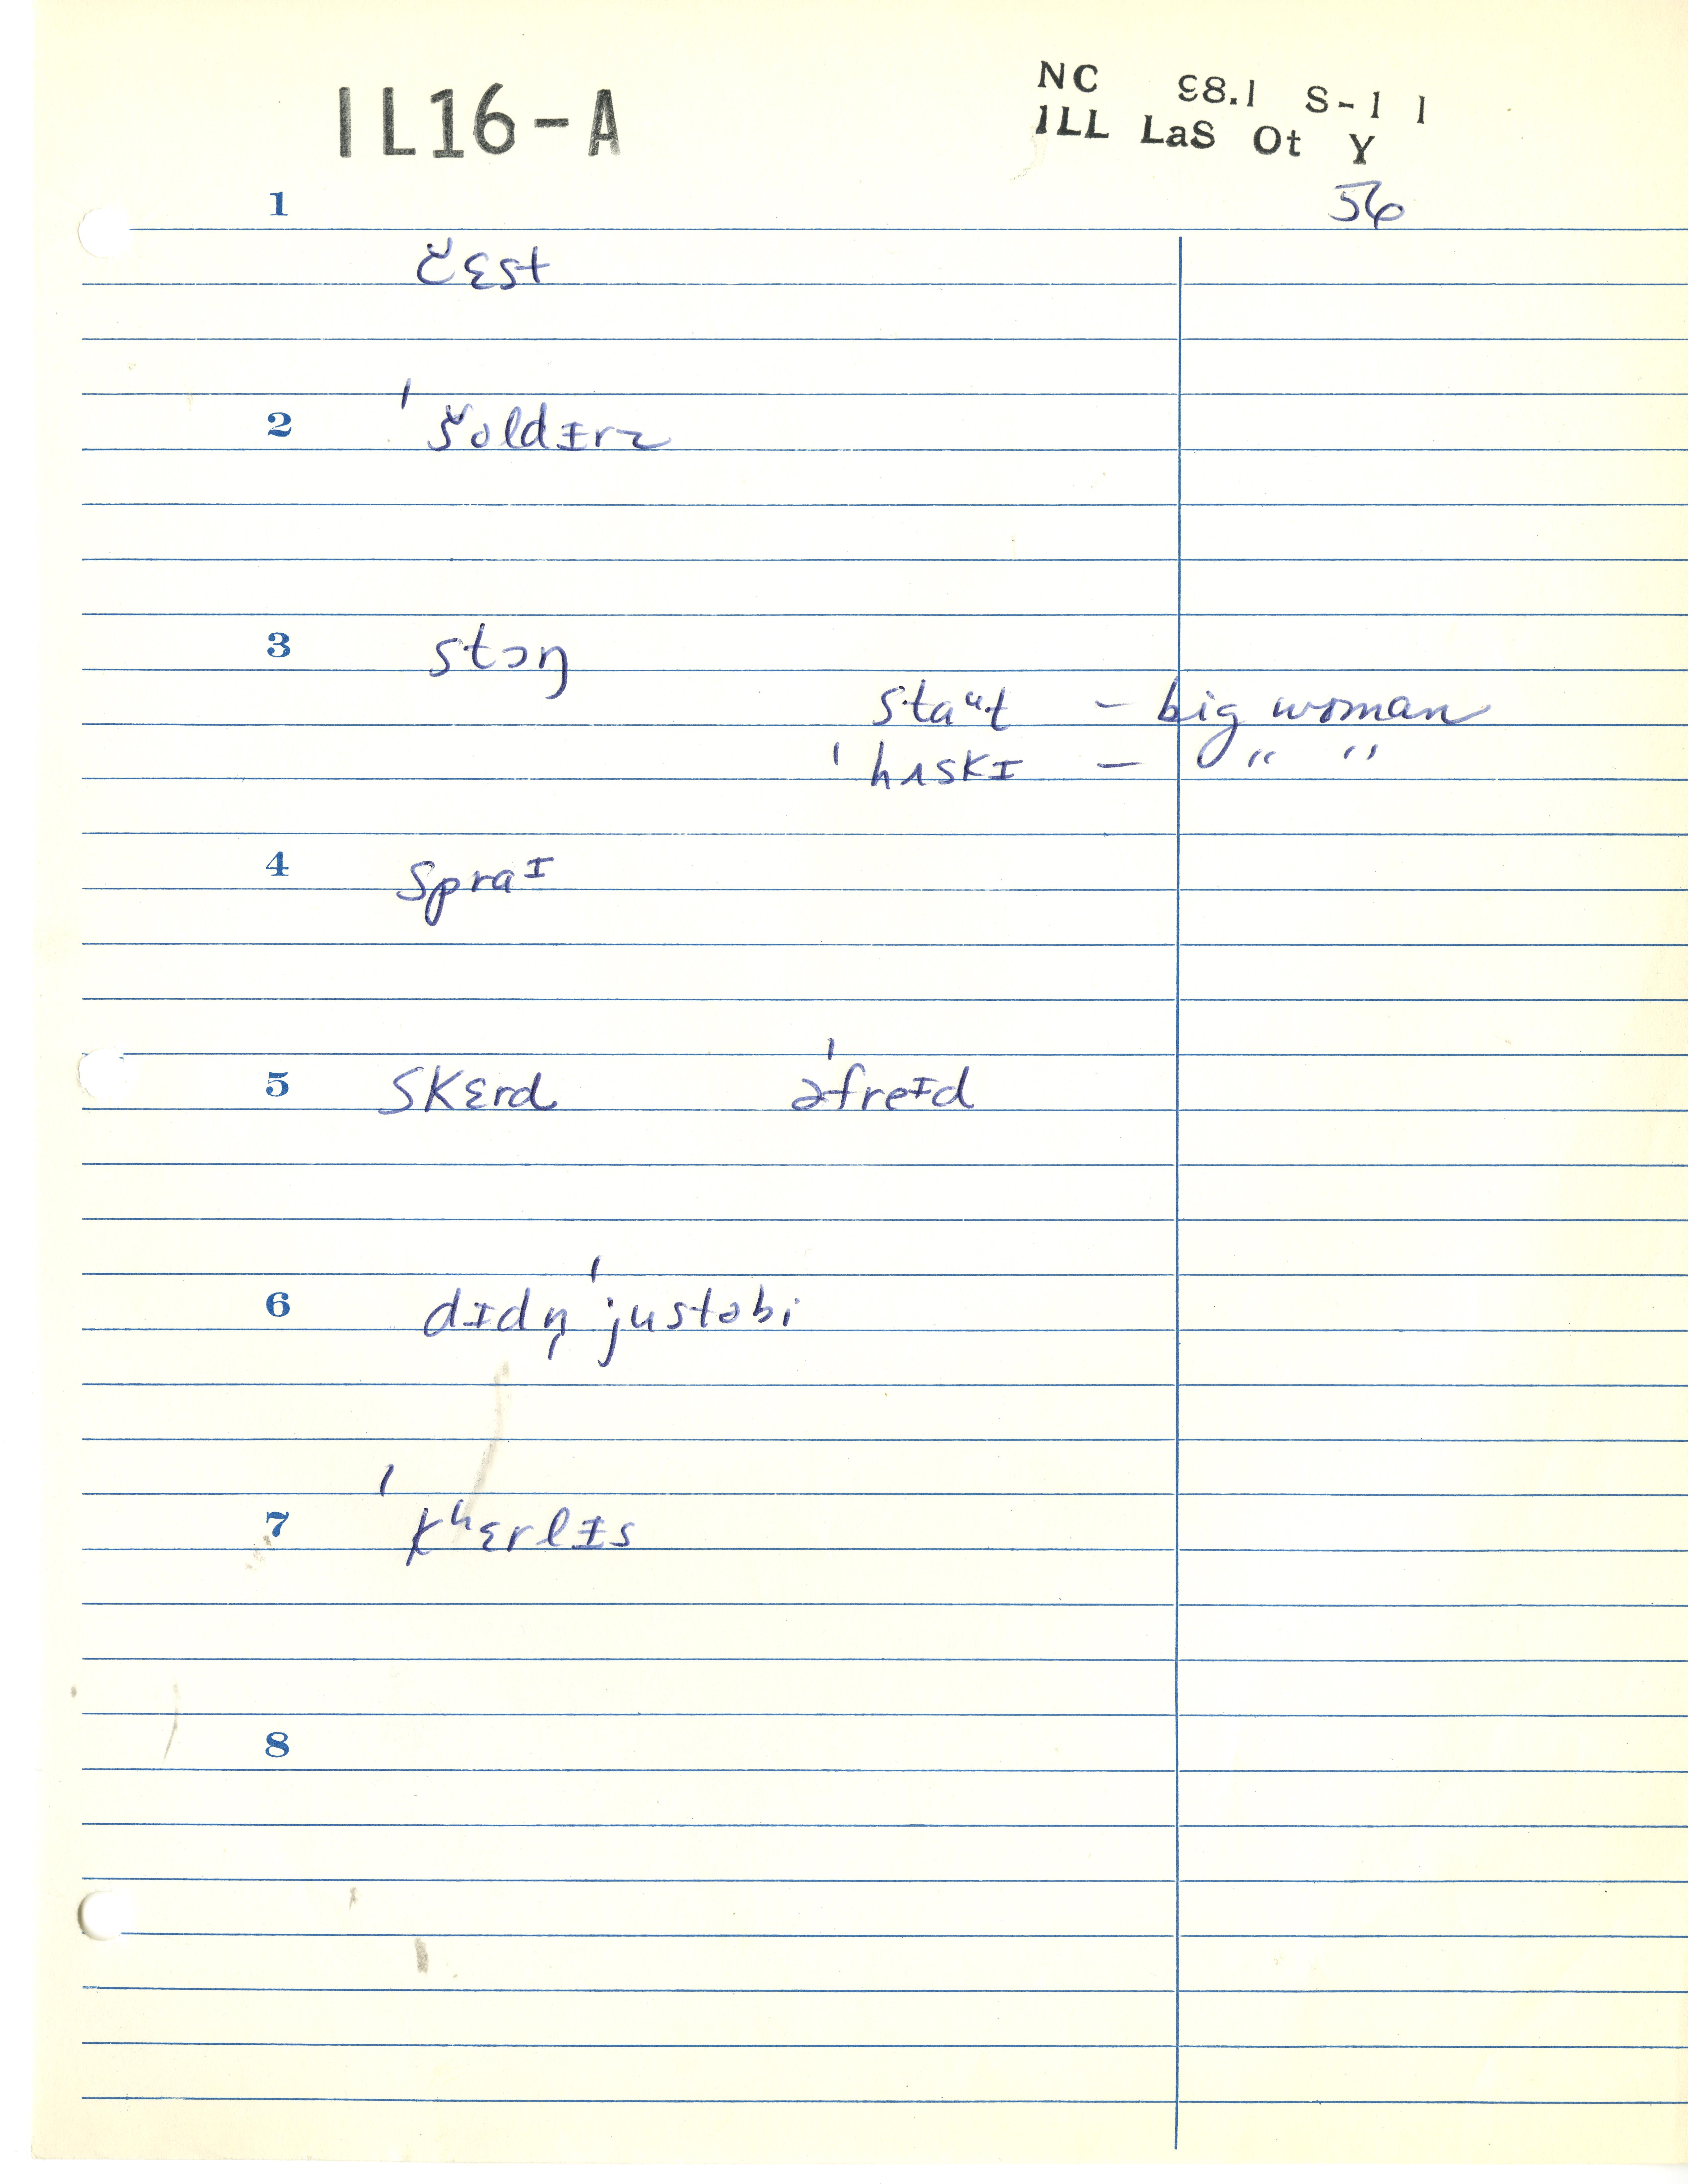 IL16-A
NC 98.1 S-1 1
ILL LaS Ot Y
56
1
čɛst
2 ˈšoldɪrz
3 stɔŋ
staᵘt – big woman
ˈhʌskɪ – " "
4 spraᴵ
5 skɛrd əˈfreᴵd
6 dɪdn̩ ˈjustəbi
7 ˈkʰɛrlɪs
8